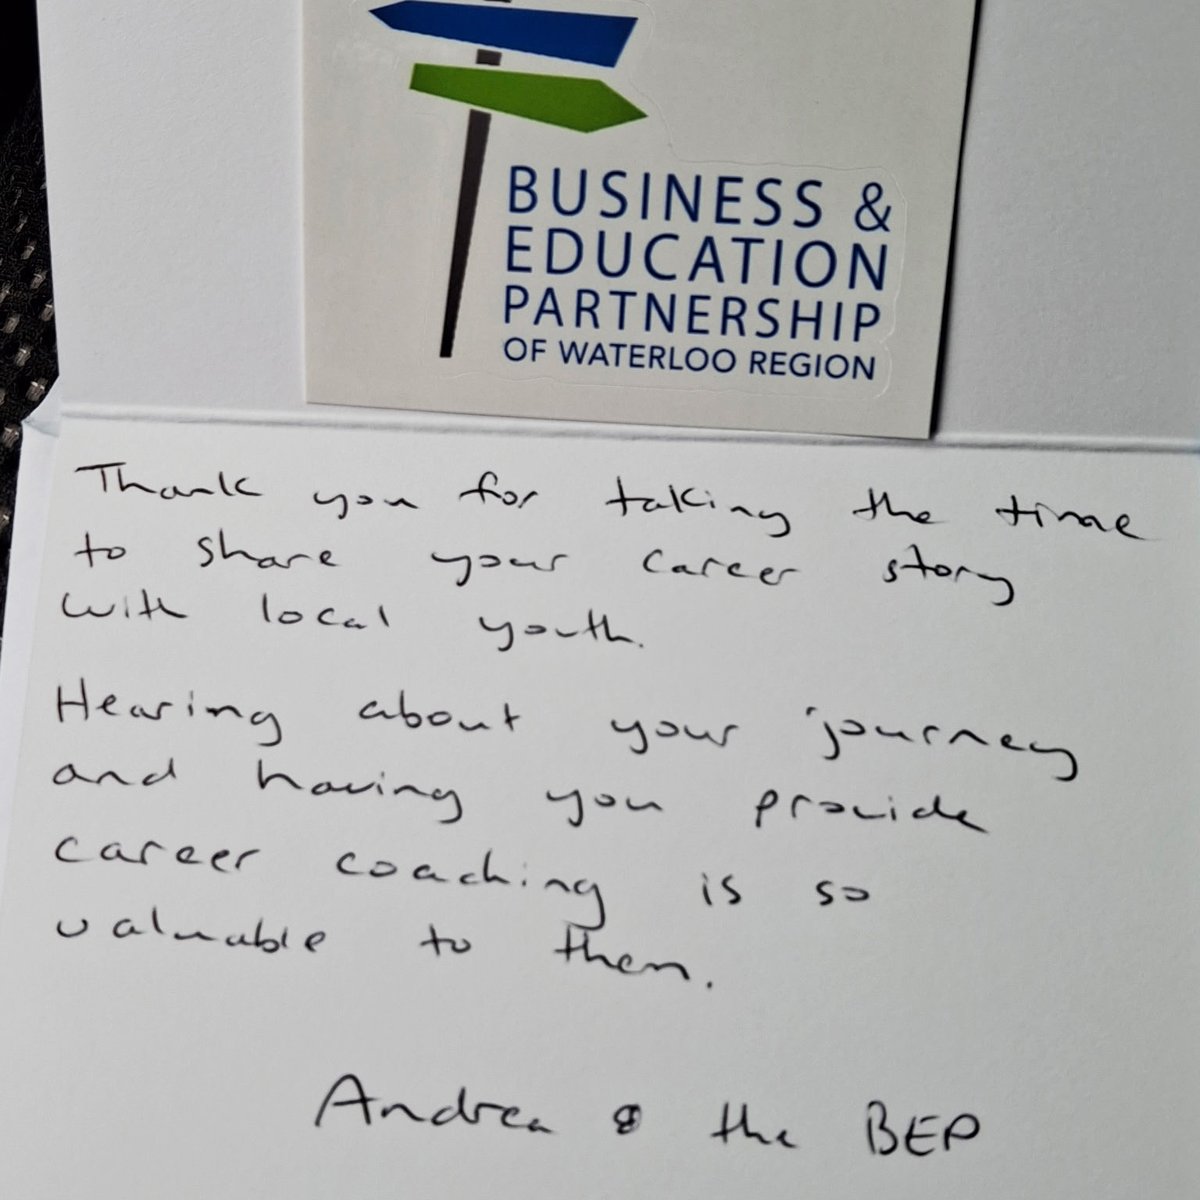 BUSINESS &
EDUCATION
PARTNERSHIP
OF WATERLOO REGION
Thank you for taking the time
to share your career story
with local youth.
Hearing about your journey
and having you provide
career coaching is so
valuable to them.
Andrea & the BEP